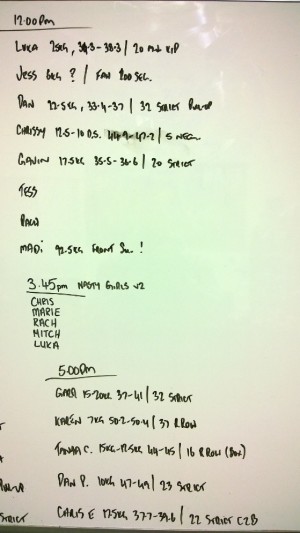 12:00pm
LUKA 25KG, 34-3 - 38-3 / 20
JESS 6KG ? / FAN 200 SEC.
DAN 22.5KG, 33-4-37 / 32 STRICT PULL-UP
CHRISSY 12.5-10 D.S. 44-9-47-2 / 5 NEG.
GAVIN 17.5KG 35-5-36-6 / 20 STRICT
TESS
MADI 92.5KG FRONT SQ. !
3.45pm NASTY GIRLS V2
CHRIS
MARIE
RACH
MITCH
LUKA
5:00pm
15-20KG 37-41 / 32 STRICT
KAREN 7KG 50-2-50-4 / 37 R.ROW
TANIA C. 15KG-17.5KG 44-45 / 16 R ROW (BOX)
DAN P. 10KG 47-49 / 23 STRICT
CHRIS E 17.5KG 37-7-39-6 / 22 STRICT C2B
STRICT